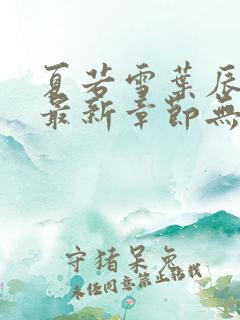 夏若雪葉辰
最新章節無
守猪呆兔
未经同意禁止转载